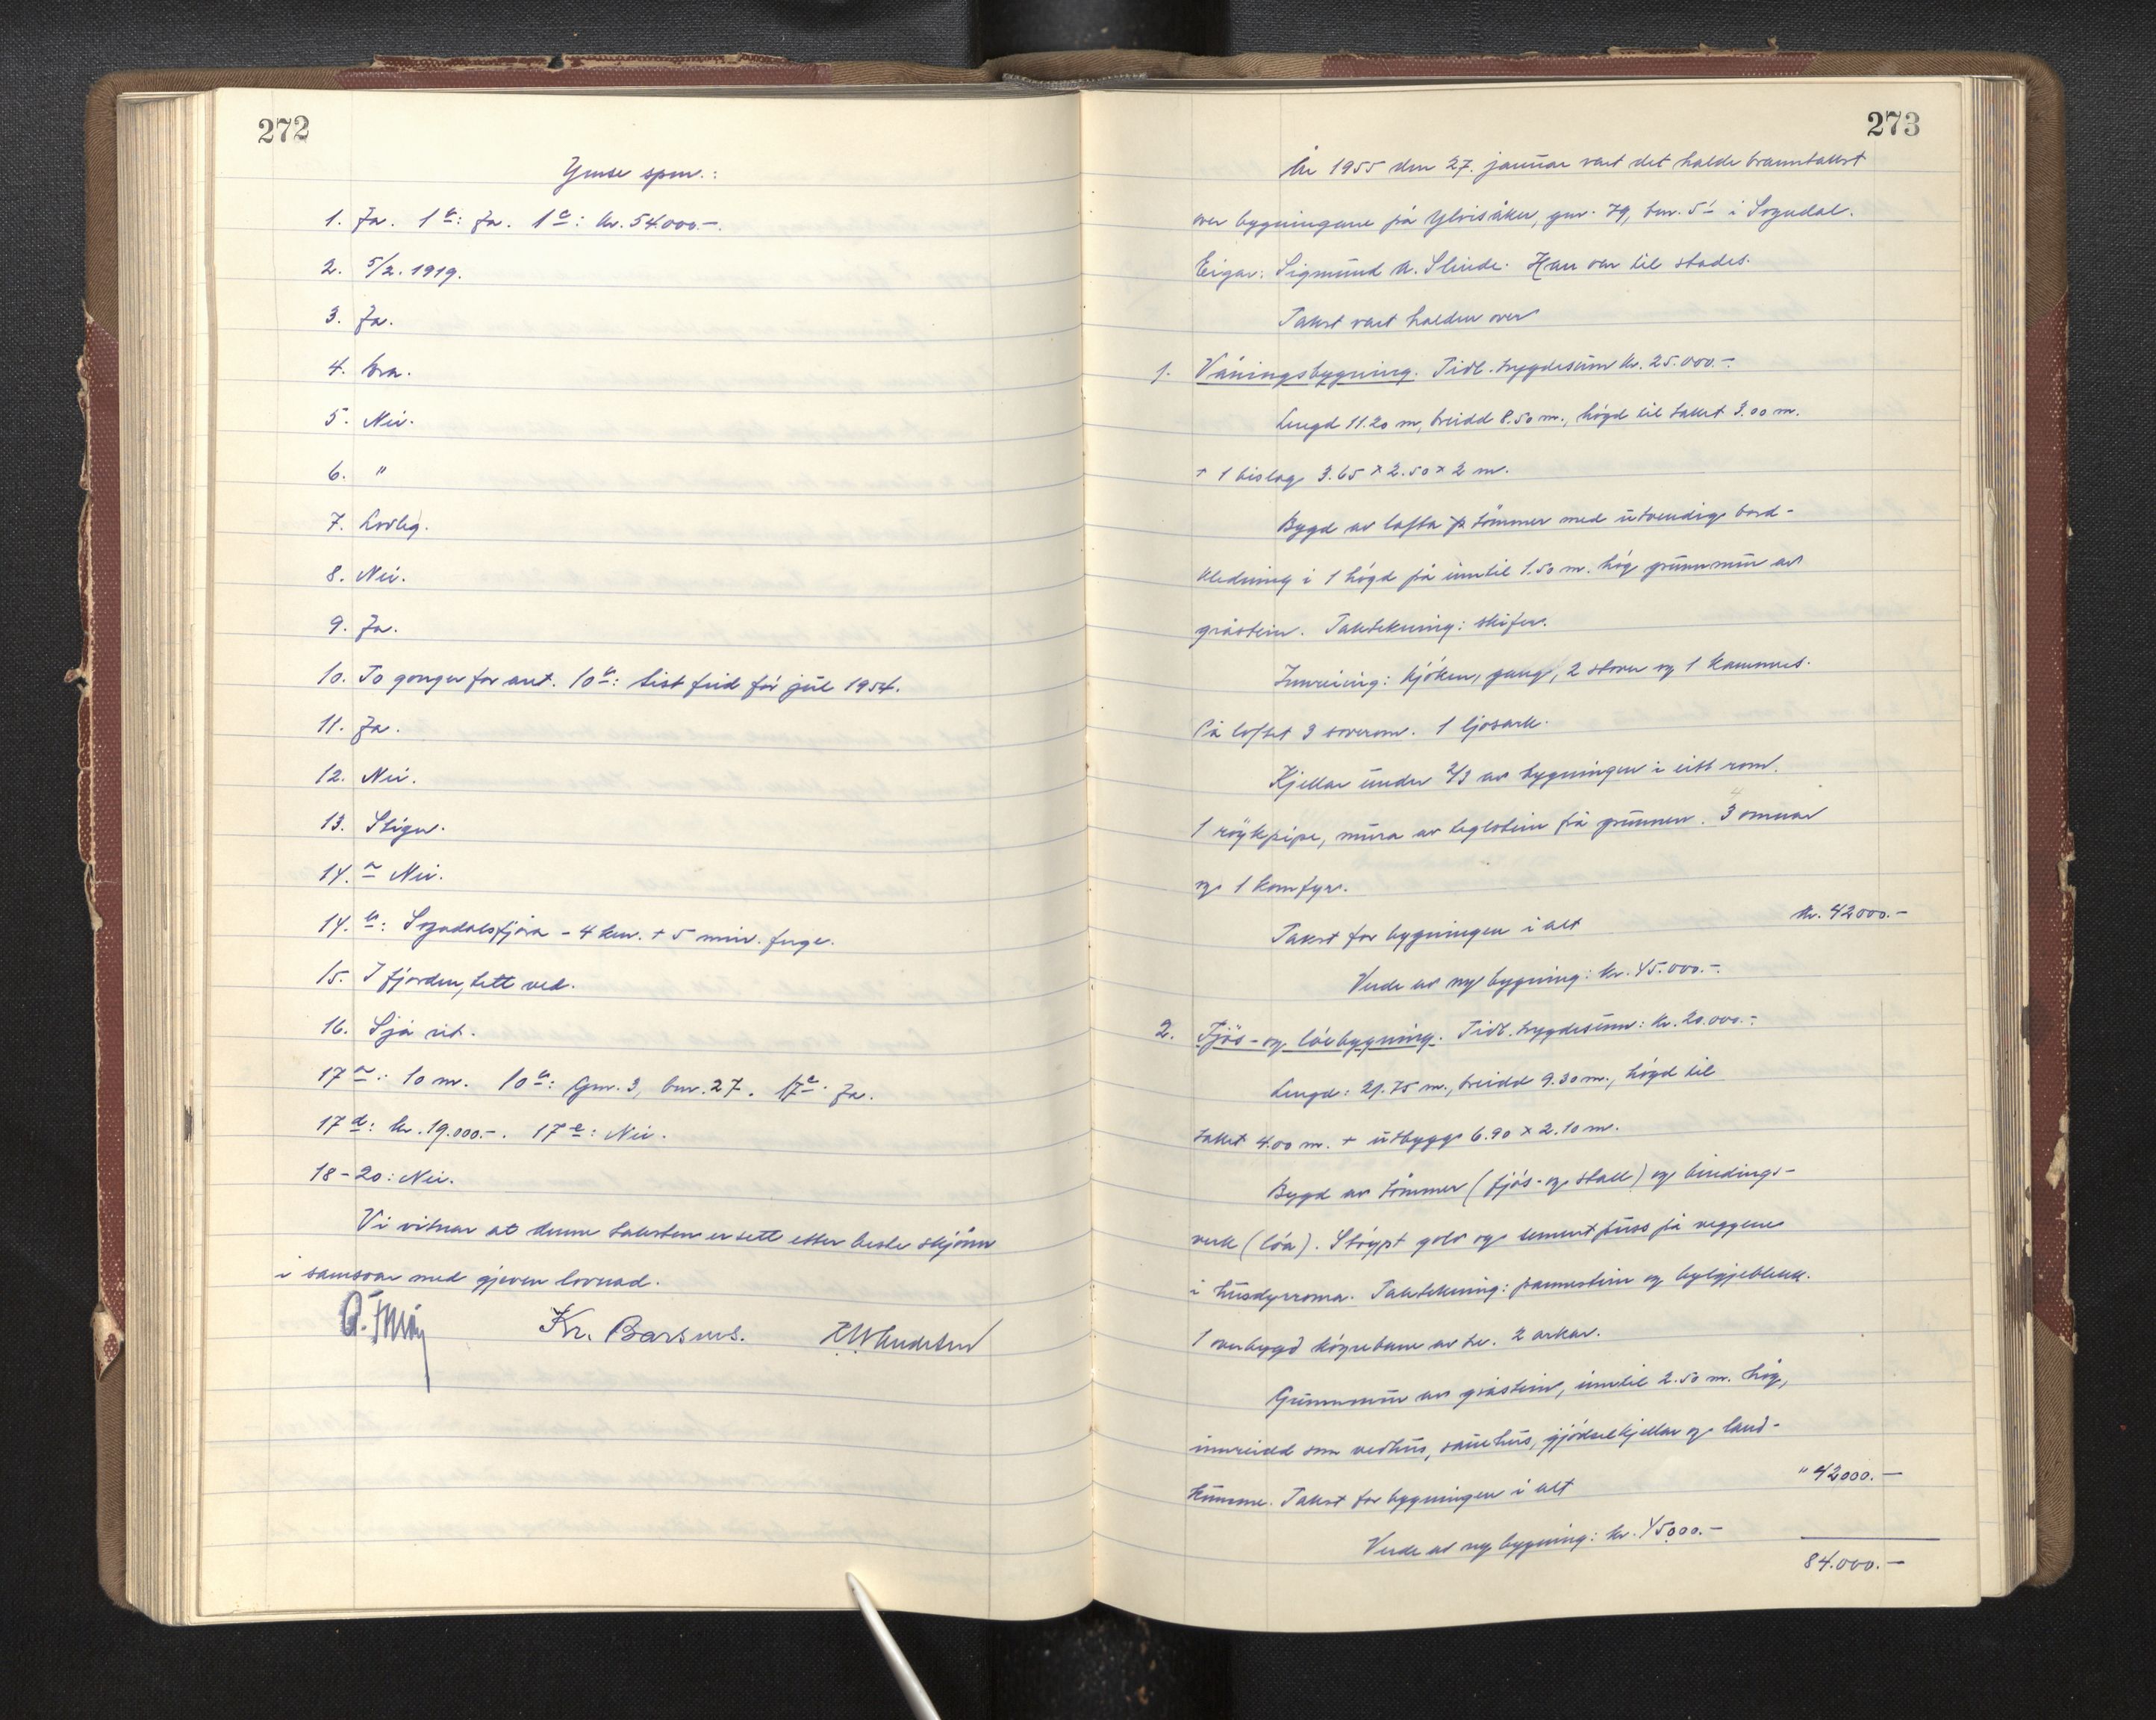 272
Ymse spm.:
1. Ja. 1 b: Ja. 1 c: kr. 54.000.-.
2. 5/2. 1919.
3. Ja.
4. bra.
5. Nei.
6. "
7. Lovleg.
8. Nei.
9. Ja.
10. To gonger for aaret. 10 b: Sist feid før jul 1954.
11. Ja.
12. Nei.
13. Stigar.
14. a Nei.
14. b: Sogndalsfjøra - 4 km. + 5 min. ferge.
15. I fjorden, tett ved.
16. Sjå rit.
17 a: 10 m. 10 b: Gnr. 3, bnr. 27. 17 c: Ja.
17 d: kr. 19.000.-. 17 e: Nei.
18-20: Nei.
Vi vitnar at denne taksten er sett etter beste skjønn
i samsvar med gjeven lovnad.
Kr. Barsnes.
273
År 1955 den 27. januar vart det halde branntakst
over bygningane på Ylvisåker, gnr. 79, bnr. 5 i Sogndal.
Eigar: Sigmund A. Slinde. Han var til stades.
Takst vart halden over
1. Våningsbygning. Tidl. trygdesum kr. 25.000.-.
Lengd 11.20 m, breidd 8.50 m., høgd til taket 3.00 m.
+ 1 bislag 3.65 x 2.50 x 2 m.
Bygd av lafta tømmer med utvendig bord-
kledning i 1 høgd på inntil 1.50 m. høg grunnmur av
gråstein. Taktekning: skifer.
Innreiing: kjøken, gang, 2 stover og 1 kammers.
På loftet 3 soverom. 1 ljosark.
Kjellar under 2/3 av bygningen i eitt rom.
1 røykpipe, mura av teglstein frå grunnen. 3 omnar
og 1 komfyr.
Takst for bygningen i alt kr. 42000.-
Verde av ny bygning: kr. 45.000.-.
2. Fjøs- og løebygning. Tidl. trygdesum: kr. 20.000.-.
Lengd: 21.75 m., breidd 9.30 m., høgd til
taket 4.00 m. + utbygg 6.90 x 2.10 m.
Bygd av tømmer (fjøs- og stall) og bindings-
verk (løa). Støypt golv og sementpuss på veggene
i husdyrroma. Taktekning: pannestein og bylgjeblekk.
1 overbygd køyrebane av tre. 2 arkar.
Grunnmur av gråstein, inntil 2.50 m. høg,
innreidd som vedhus, sauehus, gjødselkjellar og land-
kumme. Takst for bygningen i alt " 42000.-
Verde av ny bygning: kr. 45000.-
84.000.-